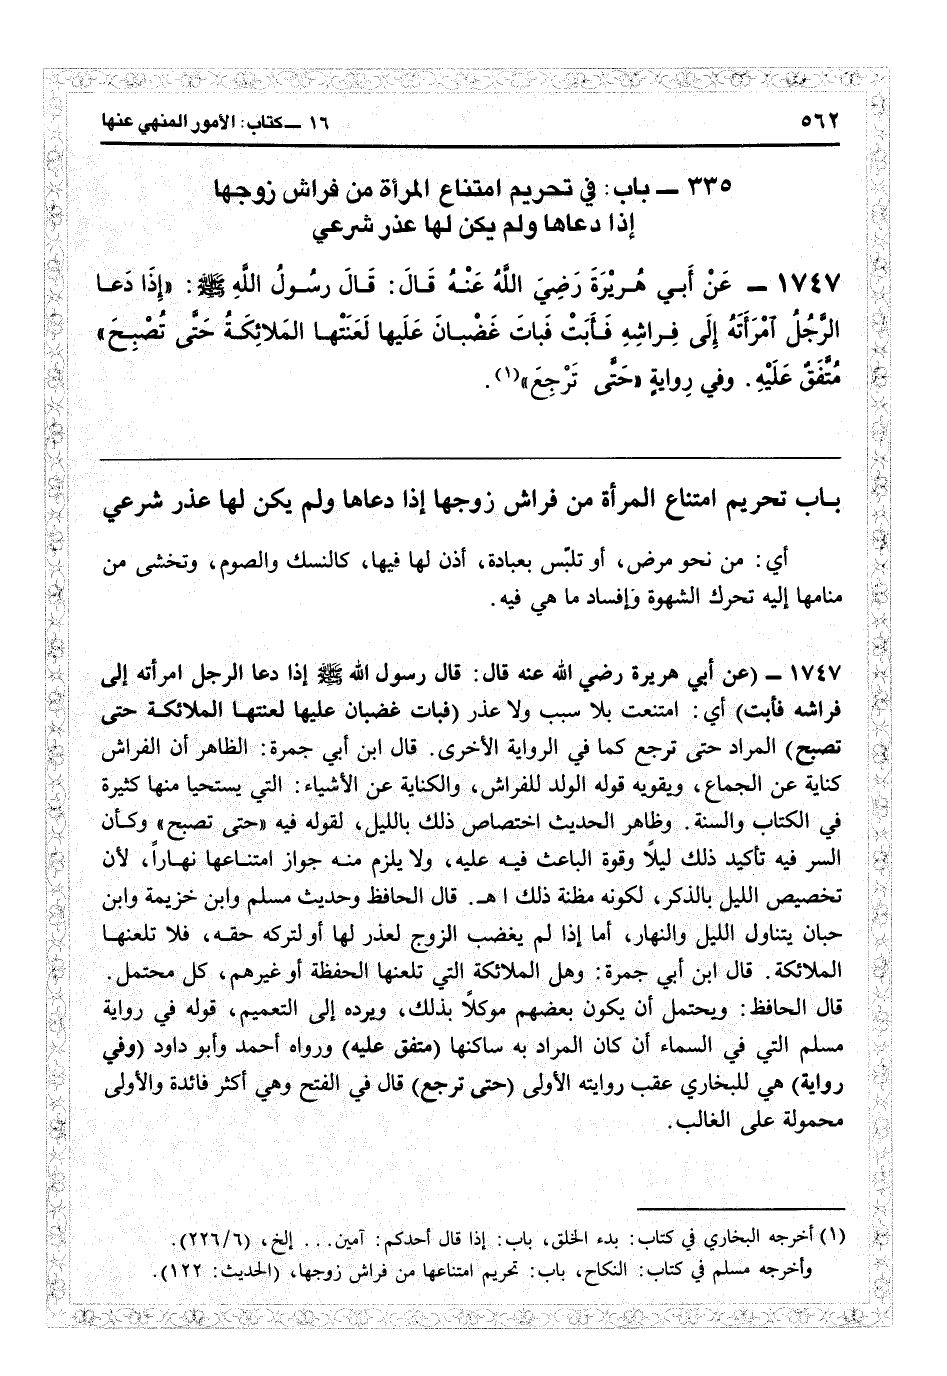 ٥٦٢
١٦ ــ كتاب: الأمور المنهي عنها
٣٣٥ ــ باب: في تحريم امتناع المرأة من فراش زوجها
إذا دعاها ولم يكن لها عذر شرعي
١٧٤٧ ــ عَنْ أَبي هُريْرَةَ رَضِيَ اللَّهُ عَنْهُ قَالَ: قَالَ رسُولُ اللَّهِ ﷺ: «إِذَا دَعا
الرَّجُلُ ٱمْرَأَتَهُ إِلَى فِراشِهِ فَأَبَتْ فَباتَ غَضْبانَ عَلَيها لَعَنَتْها المَلائِكَةُ حَتَّى تُصْبِحَ»
مُتَّفَقٌ عَلَيْهِ. وفي رِوايةٍ «حَتَّى تَرْجِعَ»(١).
باب تحريم امتناع المرأة من فراش زوجها إذا دعاها ولم يكن لها عذر شرعي
أي: من نحو مرض، أو تلبّس بعبادة، أذن لها فيها، كالنسك والصوم، وتخشى من
منامها إليه تحرك الشهوة وإفساد ما هي فيه.
١٧٤٧ ــ (عن أبي هريرة رضي الله عنه قال: قال رسول الله ﷺ إذا دعا الرجل امرأته إلى
فراشه فأبت) أي: امتنعت بلا سبب ولا عذر (فبات غضبان عليها لعنتها الملائكة حتى
تصبح) المراد حتى ترجع كما في الرواية الأخرى. قال ابن أبي جمرة: الظاهر أن الفراش
كناية عن الجماع، ويقويه قوله الولد للفراش، والكناية عن الأشياء: التي يستحيا منها كثيرة
في الكتاب والسنة. وظاهر الحديث اختصاص ذلك بالليل، لقوله فيه «حتى تصبح» وكأن
السر فيه تأكيد ذلك ليلًا وقوة الباعث فيه عليه، ولا يلزم منه جواز امتناعها نهاراً، لأن
تخصيص الليل بالذكر، لكونه مظنة ذلك ا هـ. قال الحافظ وحديث مسلم وابن خزيمة وابن
حبان يتناول الليل والنهار، أما إذا لم يغضب الزوج لعذر لها أو لتركه حقه، فلا تلعنها
الملائكة. قال ابن أبي جمرة: وهل الملائكة التي تلعنها الحفظة أو غيرهم، كل محتمل.
قال الحافظ: ويحتمل أن يكون بعضهم موكلًا بذلك، ويرده إلى التعميم، قوله في رواية
مسلم التي في السماء أن كان المراد به ساكنها (متفق عليه) ورواه أحمد وأبو داود (وفي
رواية) هي للبخاري عقب روايته الأولى (حتى ترجع) قال في الفتح وهي أكثر فائدة والأولى
محمولة على الغالب.
(١) أخرجه البخاري في كتاب: بدء الخلق، باب: إذا قال أحدكم: آمين... إلخ، (٢٢٦/٦).
وأخرجه مسلم في كتاب: النكاح، باب: تحريم امتناعها من فراش زوجها، (الحديث: ١٢٢).